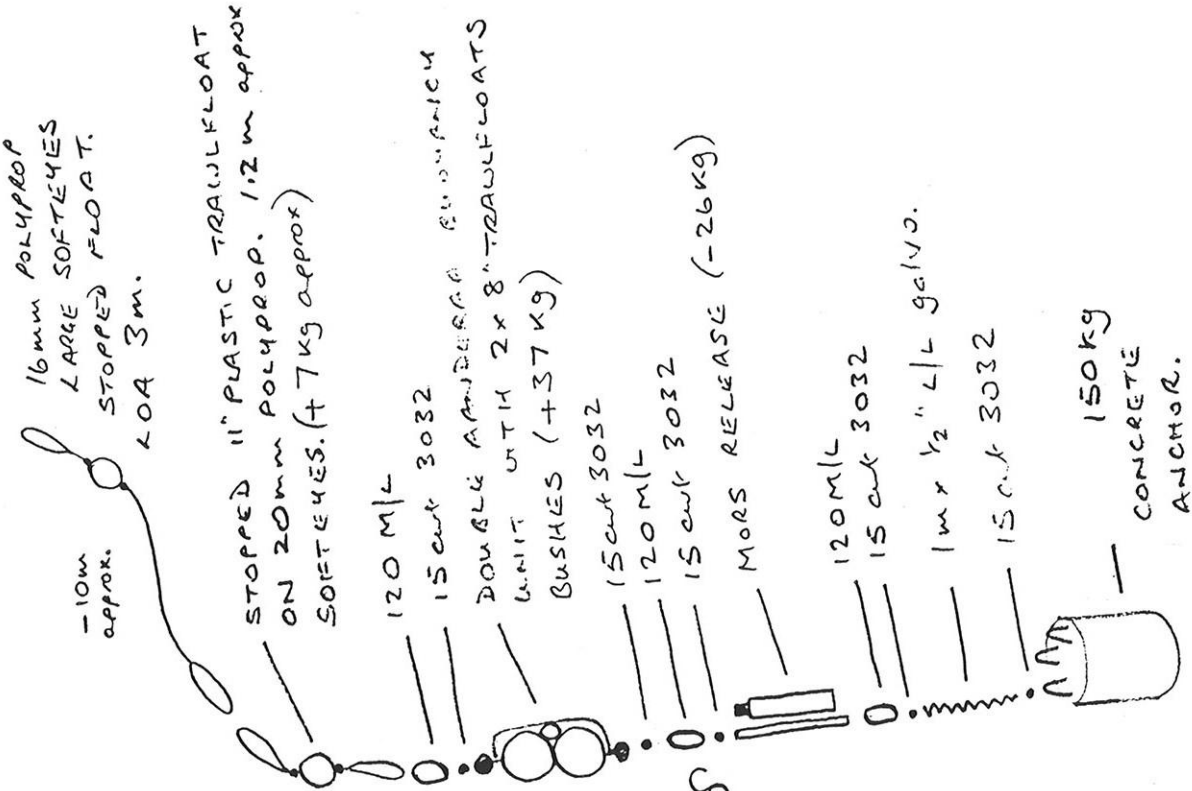 16mm POLYPROP
LARGE SOFTEYES
STOPPED FLOAT.
LOA 3m.
-10m
approx.
STOPPED 11" PLASTIC TRAWLFLOAT
ON 20mm POLYPROP. 1.2m approx
SOFTEYES. (+7kg approx)
120 M/L
15 cwt 3032
DOUBLE
UNIT WITH 2 x 8" TRAWLFLOATS
BUSHES (+37kg)
15 cwt 3032
120 M/L
15 cwt 3032
MORS RELEASE (-26kg)
120 M/L
15 cwt 3032
1m x 1/2" L/L galvo.
15 cwt 3032
150kg
CONCRETE
ANCHOR.